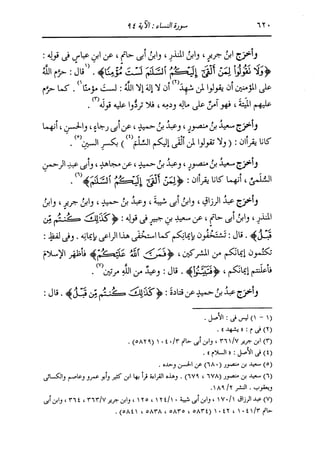 ٦٢٠ سورة النساء : الآية ٩٤
وأخرج ابنُ جريرٍ ، وابنُ المنذرِ ، وابنُ أبي حاتمٍ ، عن ابنِ عباسٍ في قولِه :
﴿وَلَا نَقُولُوا لِمَنْ أَلْقَىٰ إِلَيْكُمُ السَّلَٰمَ لَسْتَ مُؤْمِنًا﴾ . (١قال : حرَّم اللهُ
على المؤمنين أن يقولوا لمن شهِد(٢) أن لا إلهَ إلا اللهُ : لستَ مؤمنًا١) . كما حرَّم
عليهم الميتةَ ، فهو آمنٌ على مالِه ودمِه ، فلا ترُدُّوا عليه قولَه(٣) .
وأخرج سعيدُ بنُ منصورٍ ، وعبدُ بنُ حميدٍ ، عن أبي رجاءٍ ، والحسنِ ، أنهما
كانا يقرأان : ( ولا تقولوا لمن ألقى إليكم السِّلم(٤) ) بكسرِ السينِ(٥) .
وأخرج سعيدُ بنُ منصورٍ ، وعبدُ بنُ حميدٍ ، عن مجاهدٍ ، وأبي عبدِ الرحمنِ
السُّلَميِّ ، أنهما كانا يقرأان : ﴿لِمَنْ أَلْقَىٰ إِلَيْكُمُ السَّلَٰمَ﴾(٦) .
وأخرج عبدُ الرزاقِ ، وابنُ أبي شيبةَ ، وعبدُ بنُ حميدٍ ، وابنُ جريرٍ ، وابنُ
المنذرِ ، وابنُ أبي حاتمٍ ، عن سعيدِ بنِ جبيرٍ في قولِه : ﴿كَذَٰلِكَ كُنتُم مِّن
قَبْلُ﴾ . قال : تستَخْفُون بإيمانِكم كما استخْفَى هذا الراعى بإيمانِه . وفي لفظٍ :
تكتُمون إيمانَكم من المشركين ، ﴿فَمَنَّ اللَّهُ عَلَيْكُمْ﴾ فأظهَر الإسلامَ
فأعلَنتم إيمانَكم ، ﴿فَتَبَيَّنُوٓا۟﴾ . قال : وعيدٌ من اللهِ مرتين(٧) .
وأخرج عبدُ بنُ حميدٍ عن قتادةَ : ﴿كَذَٰلِكَ كُنتُم مِّن قَبْلُ﴾ . قال :
(١ - ١) ليس في : الأصل .
(٢) في م : « يشهد » .
(٣) ابن جرير ٣٦١/٧ ، وابن أبي حاتم ١٠٤٠/٣ (٥٨٢٩) .
(٤) في الأصل : « السلام » .
(٥) سعيد بن منصور (٦٨٠) عن الحسن وحده .
(٦) سعيد بن منصور (٦٧٨ ، ٦٧٩) . وهذه القراءة قرأ بها ابن كثير وأبو عمرو وعاصم والكسائى
ويعقوب . النشر ١٨٩/٢ .
(٧) عبد الرزاق ١٧٠/١ ، وابن أبي شيبة ١٢٤/١٠ ، ١٢٥ ، وابن جرير ٣٦٣/٧ ، ٣٦٤ ، وابن أبي
حاتم ١٠٤١/٣ ، ١٠٤٢ (٥٨٣٤ ، ٥٨٣٥ ، ٥٨٣٨ ، ٥٨٤١) .